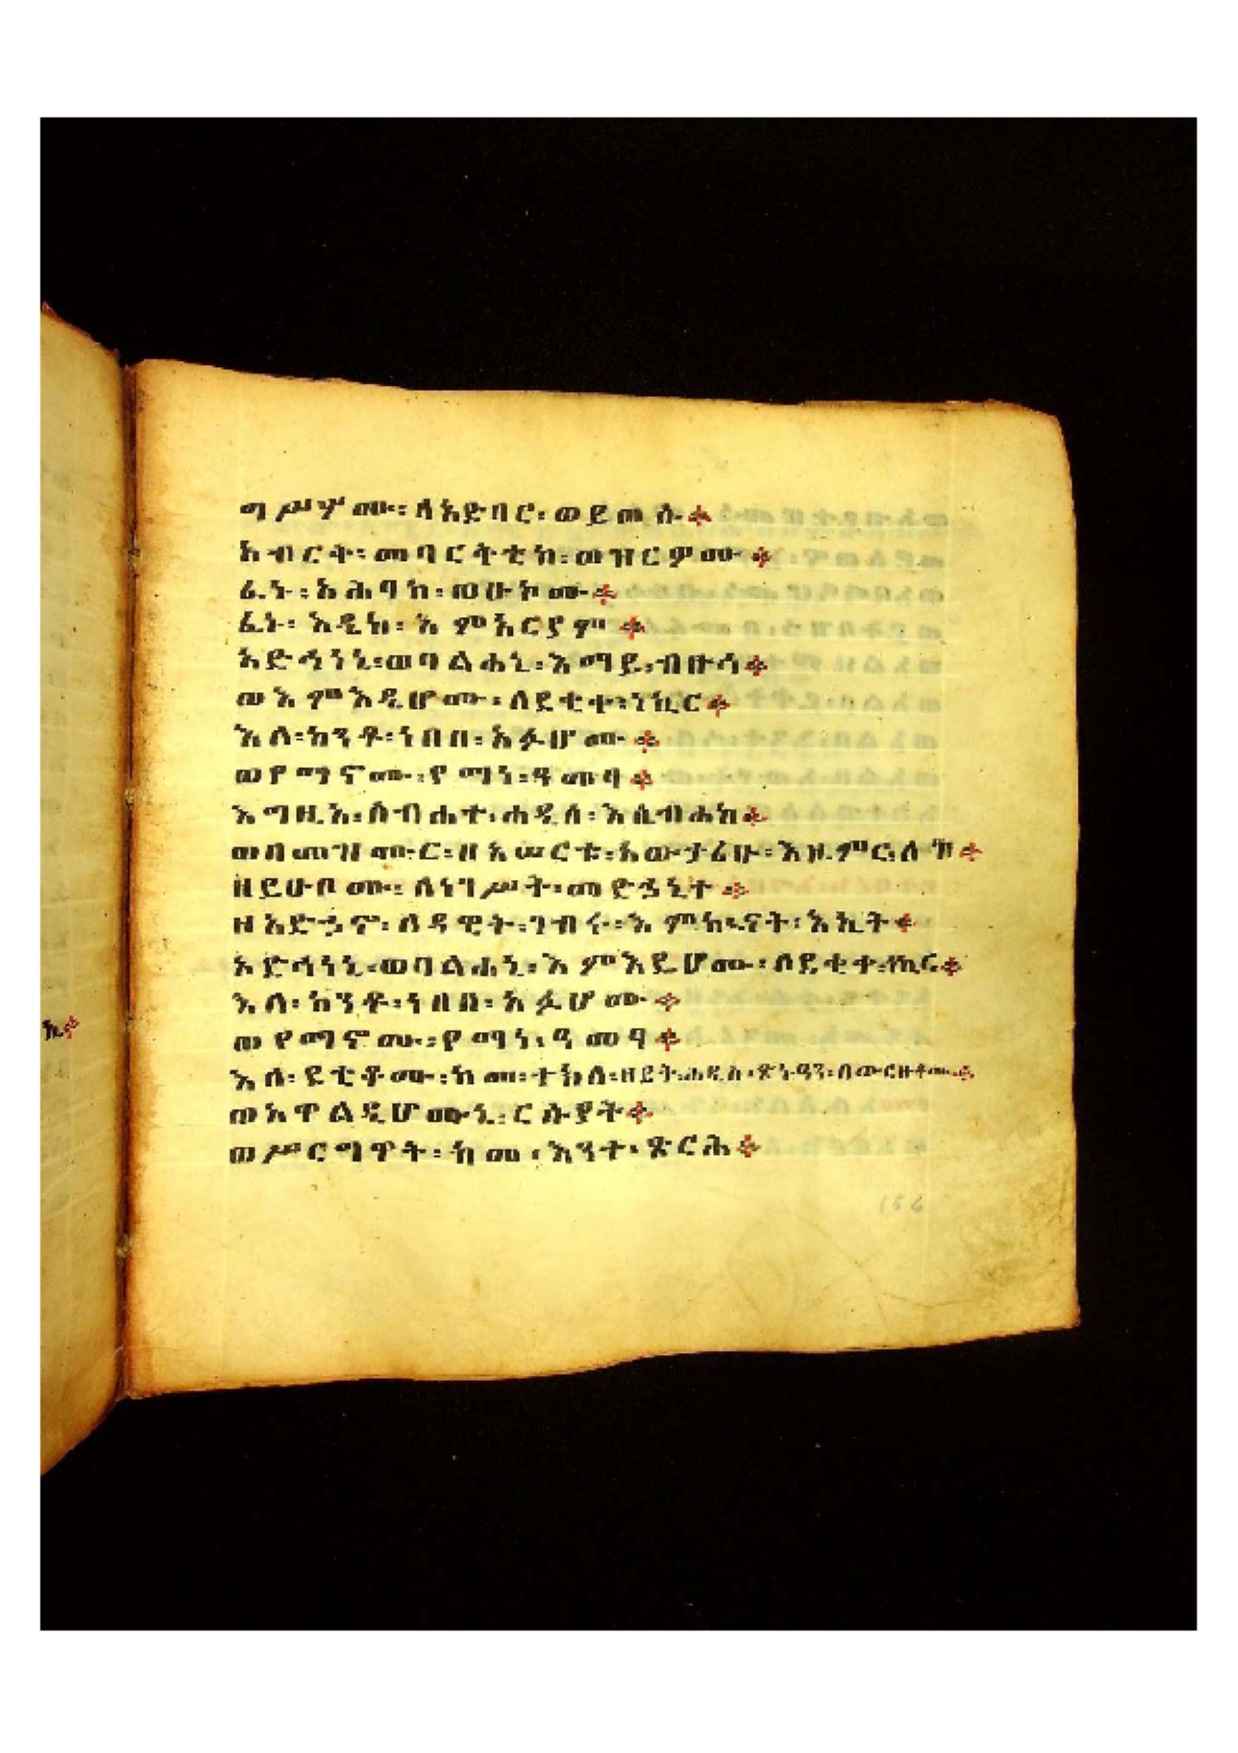 ግሥሦሙ፡ ለአድባር፡ ወይጠሱ።
አብርቅ፡ መባርቅቲከ፡ ወዝርዎሙ።
ፈኑ፡ አሕፃከ፡ ወሁኮሙ።
ፈኑ፡ እዴከ፡ እምአርያም።
አድኅነኒ፡ ወባልሐኒ፡ እማይ፡ ብዙኅ።
ወእምእዴሆሙ፡ ለደቂቀ፡ ነኪር።
እለ፡ ከንቶ፡ ነበበ፡ አፉሆሙ።
ወየማኖሙ፡ የማነ፡ ዓመፃ።
እግዚአ፡ ስብሐተ፡ ሐዲሰ፡ እሴብሐከ።
ወበመዝሙር፡ ዘአሠርቱ፡ አውታሪሁ፡ እዜምር፡ ለከ።
ዘይሁቦሙ፡ ለነገሥት፡ መድኃኒተ።
ዘአድኃኖ፡ ለዳዊት፡ ገብሩ፡ እምኵናት፡ እኪት።
አድኅነኒ፡ ወባልሐኒ፡ እምእዴሆሙ፡ ለደቂቀ፡ ነኪር።
እለ፡ ከንቶ፡ ነበበ፡ አፉሆሙ።
ወየማኖሙ፡ የማነ፡ ዓመፃ።
እለ፡ ደቂቆሙ፡ ከመ፡ ተክለ፡ ዘይት፡ ሐዲስ፡ ጽኑዓን፡ በውርዙቶሙ።
ወአዋልዲሆሙኒ፡ ርሱያት።
ወሥርግዋት፡ ከመ፡ እንተ፡ ጽርሕ።